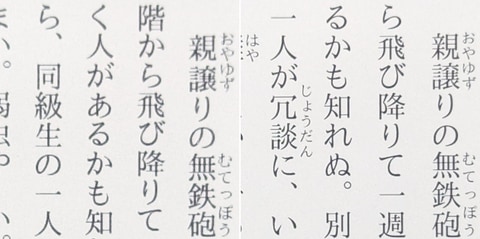 親譲りの無鉄砲
おやゆず
むてっぽう
階から飛び降りて
く人があるかも知
ら、同級生の一人
親譲りの無鉄砲
おやゆず
むてっぽう
ら飛び降りて一週
るかも知れぬ。別
一人が冗談に、い
じょうだん
はや